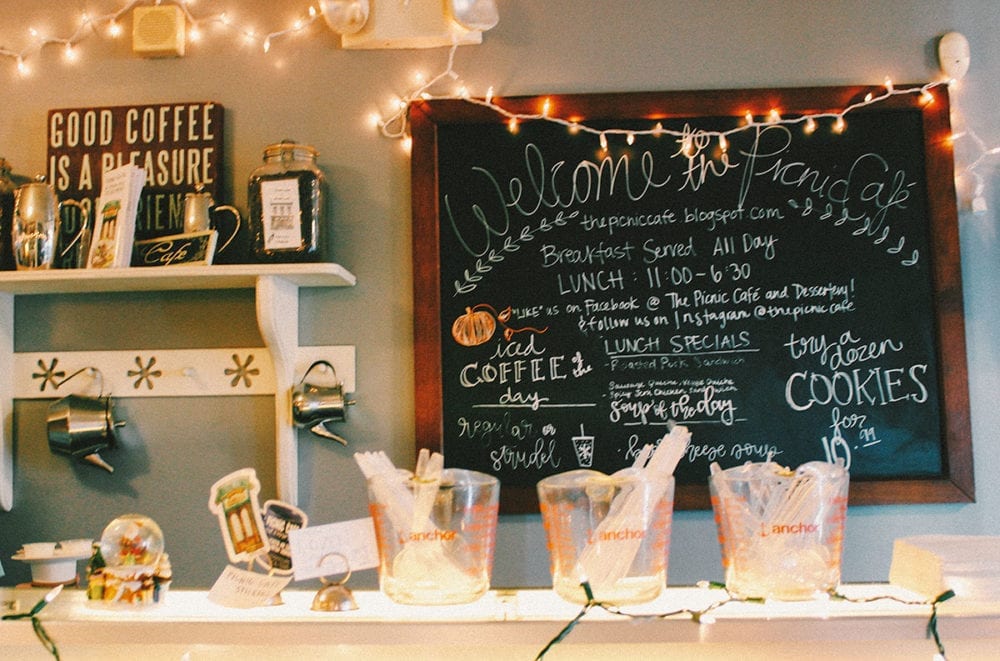 GOOD COFFEE
IS A PLEASURE
Cafe
Welcome to the Picnic Café
thepiniccafe.blogspot.com
Breakfast Served All Day
LUNCH: 11:00-6:30
"LIKE" us on Facebook @ The Picnic Café and Dessertery!
& follow us on Instagram @thepicniccafe
iced
COFFEE of the
day
regular or
strudel
LUNCH SPECIALS
- Roasted Pork Sandwich
Soup of the day
soup
try a
dozen
COOKIES
for
.99
anchor
anchor
anchor